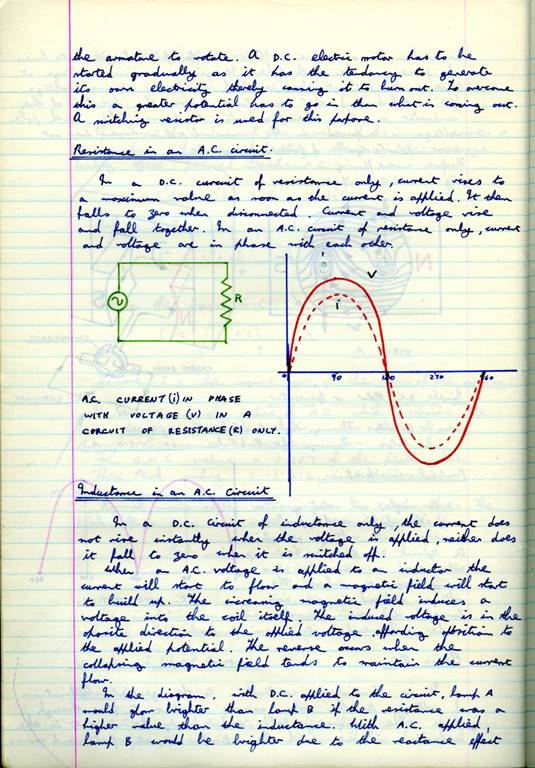 the armature to rotate. A D.C. electric motor has to be
started gradually as it has the tendancy to generate
its own electricity thereby causing it to burn out. To overcome
this a greater potential has to go in than what is coming out.
A switching resistor is used for this purpose.
Resistance in an A.C. circuit.
In a D.C. circuit of resistance only, current rises to
a maximum value as soon as the current is applied. It then
falls to zero when disconnected. Current and voltage rise
and fall together. In an A.C. circuit of resistance only, current
and voltage are in phase with each other.
R
V
i
0 90 180 270 360
A.C. CURRENT (i) IN PHASE
WITH VOLTAGE (V) IN A
CIRCUIT OF RESISTANCE (R) ONLY.
Inductance in an A.C. Circuit
In a D.C. circuit of inductance only, the current does
not rise instantly when the voltage is applied, neither does
it fall to zero when it is switched off.
When an A.C. voltage is applied to an inductor the
current will start to flow and a magnetic field will start
to build up. The increasing magnetic field induces a
voltage into the coil itself. The induced voltage is in the
oposite direction to the applied voltage affording oposition to
the applied potential. The reverse occurs when the
collapsing magnetic field tends to maintain the current
flow.
In the diagram, with D.C. applied to the circuit, lamp A
would glow brighter than lamp B if the resistance was a
higher value than the inductance. With A.C. applied,
lamp B would be brighter due to the reactance effect